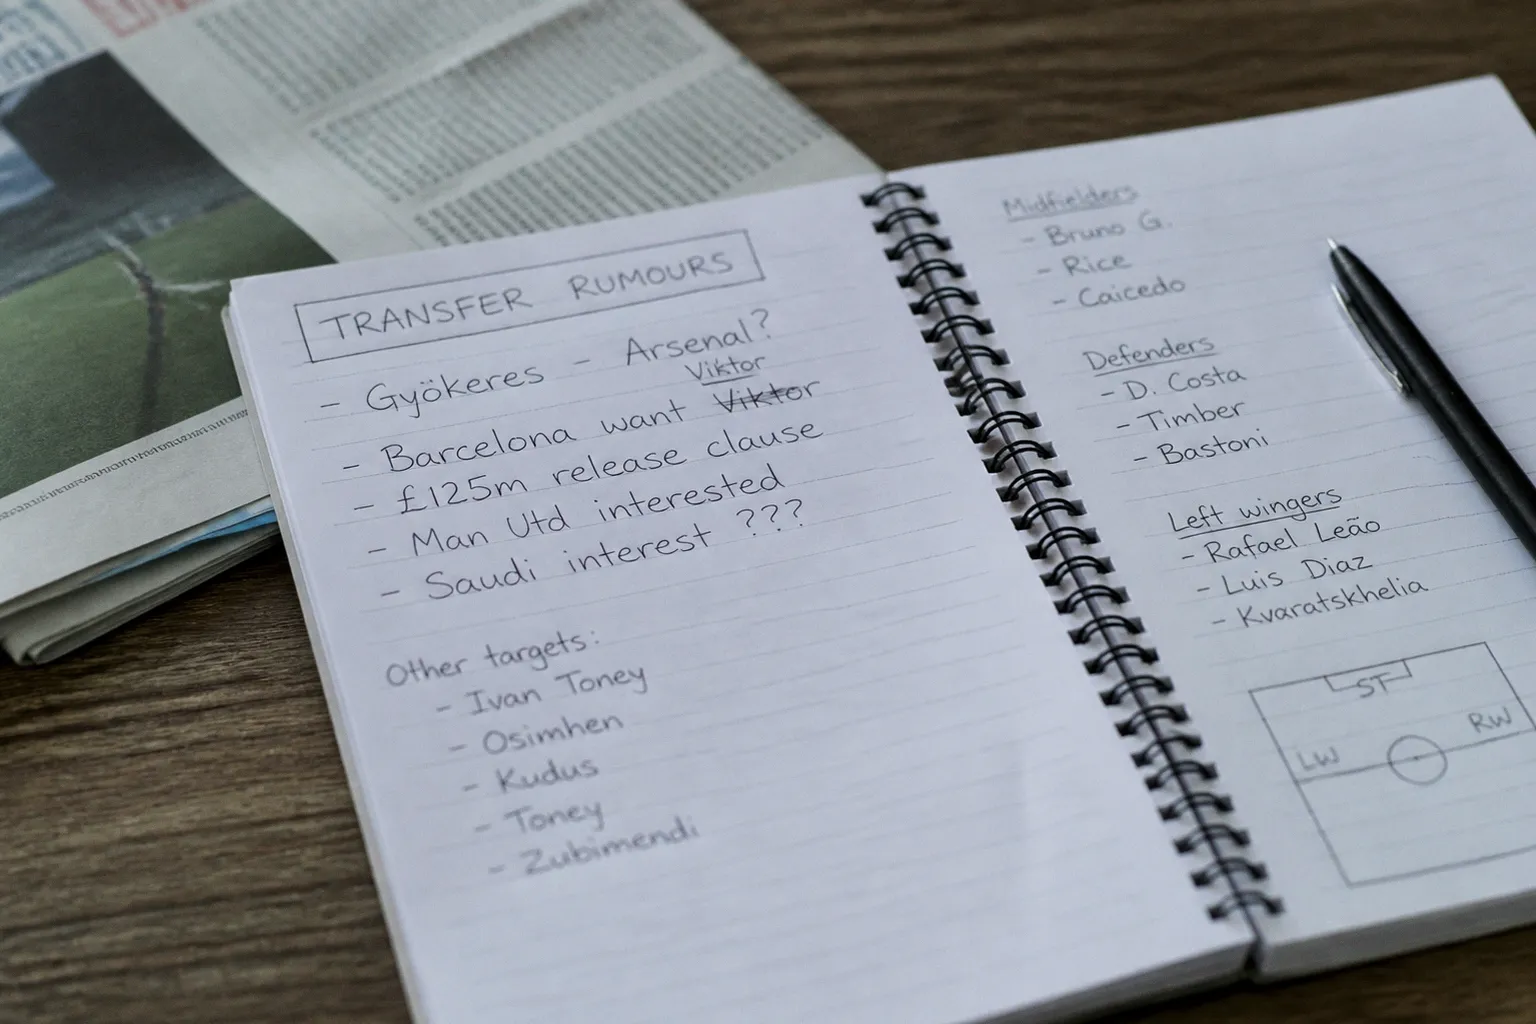 TRANSFER RUMOURS
- Gyökeres - Arsenal?
Viktor
- Barcelona want Viktor
- £125m release clause
- Man Utd interested
- Saudi interest ???
Other targets:
- Ivan Toney
- Osimhen
- Kudus
- Toney
- Zubimendi
Midfielders
- Bruno G.
- Rice
- Caicedo
Defenders
- D. Costa
- Timber
- Bastoni
Left wingers
- Rafael Leão
- Luis Diaz
- Kvaratskhelia
ST
LW RW